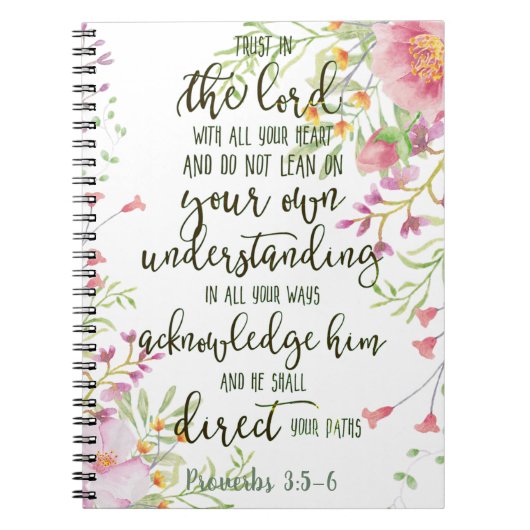 TRUST IN
the lord
WITH ALL YOUR HEART
AND DO NOT LEAN ON
your own
understanding
IN ALL YOUR WAYS
acknowledge him
AND HE SHALL
direct YOUR PATHS
Proverbs 3:5-6